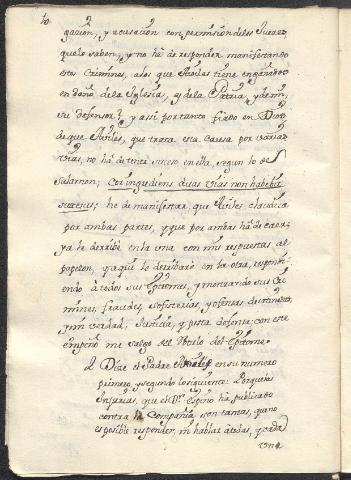 10.
gacion, y acusacion con permission de los Juezes
que lo saben, y no ha de responder manifestando
estos Crimines, a los que Aviles tiene engañados
en daño de la Iglesia, y de la Patria, y de mi,
su defensor? y assi por tanto fiado en Dios
de que Aviles, que trata esta causa por varias
vias, no ha de tener suceso en ella, segun lo de
Salamon; Cor ingrediens duas vias non habebit
sucesus; he de manifestar, que Aviles claudica
por ambas partes, y que por ambas ha de caer,
ya le derribè en la una con mis respuestas al
papelon, y aqui le derribarè en la otra, respondi-
endo à todos sus Epitomes, y mostrando sus Cri-
mines, fraudes, sofisterias, y ofensas de
y mi verdad, Justicia, y justa defensa; con este
empeño me salgo del Titulo del Epitome.
2 Dize el Padre Aviles en su numero
primero, y segundo lo siguiente: Porque las
Injurias, que el Dr. Espino ha publicado
contra la Compañia son tantas, que no
es posible responder, ni hablar a todas, y cada
una